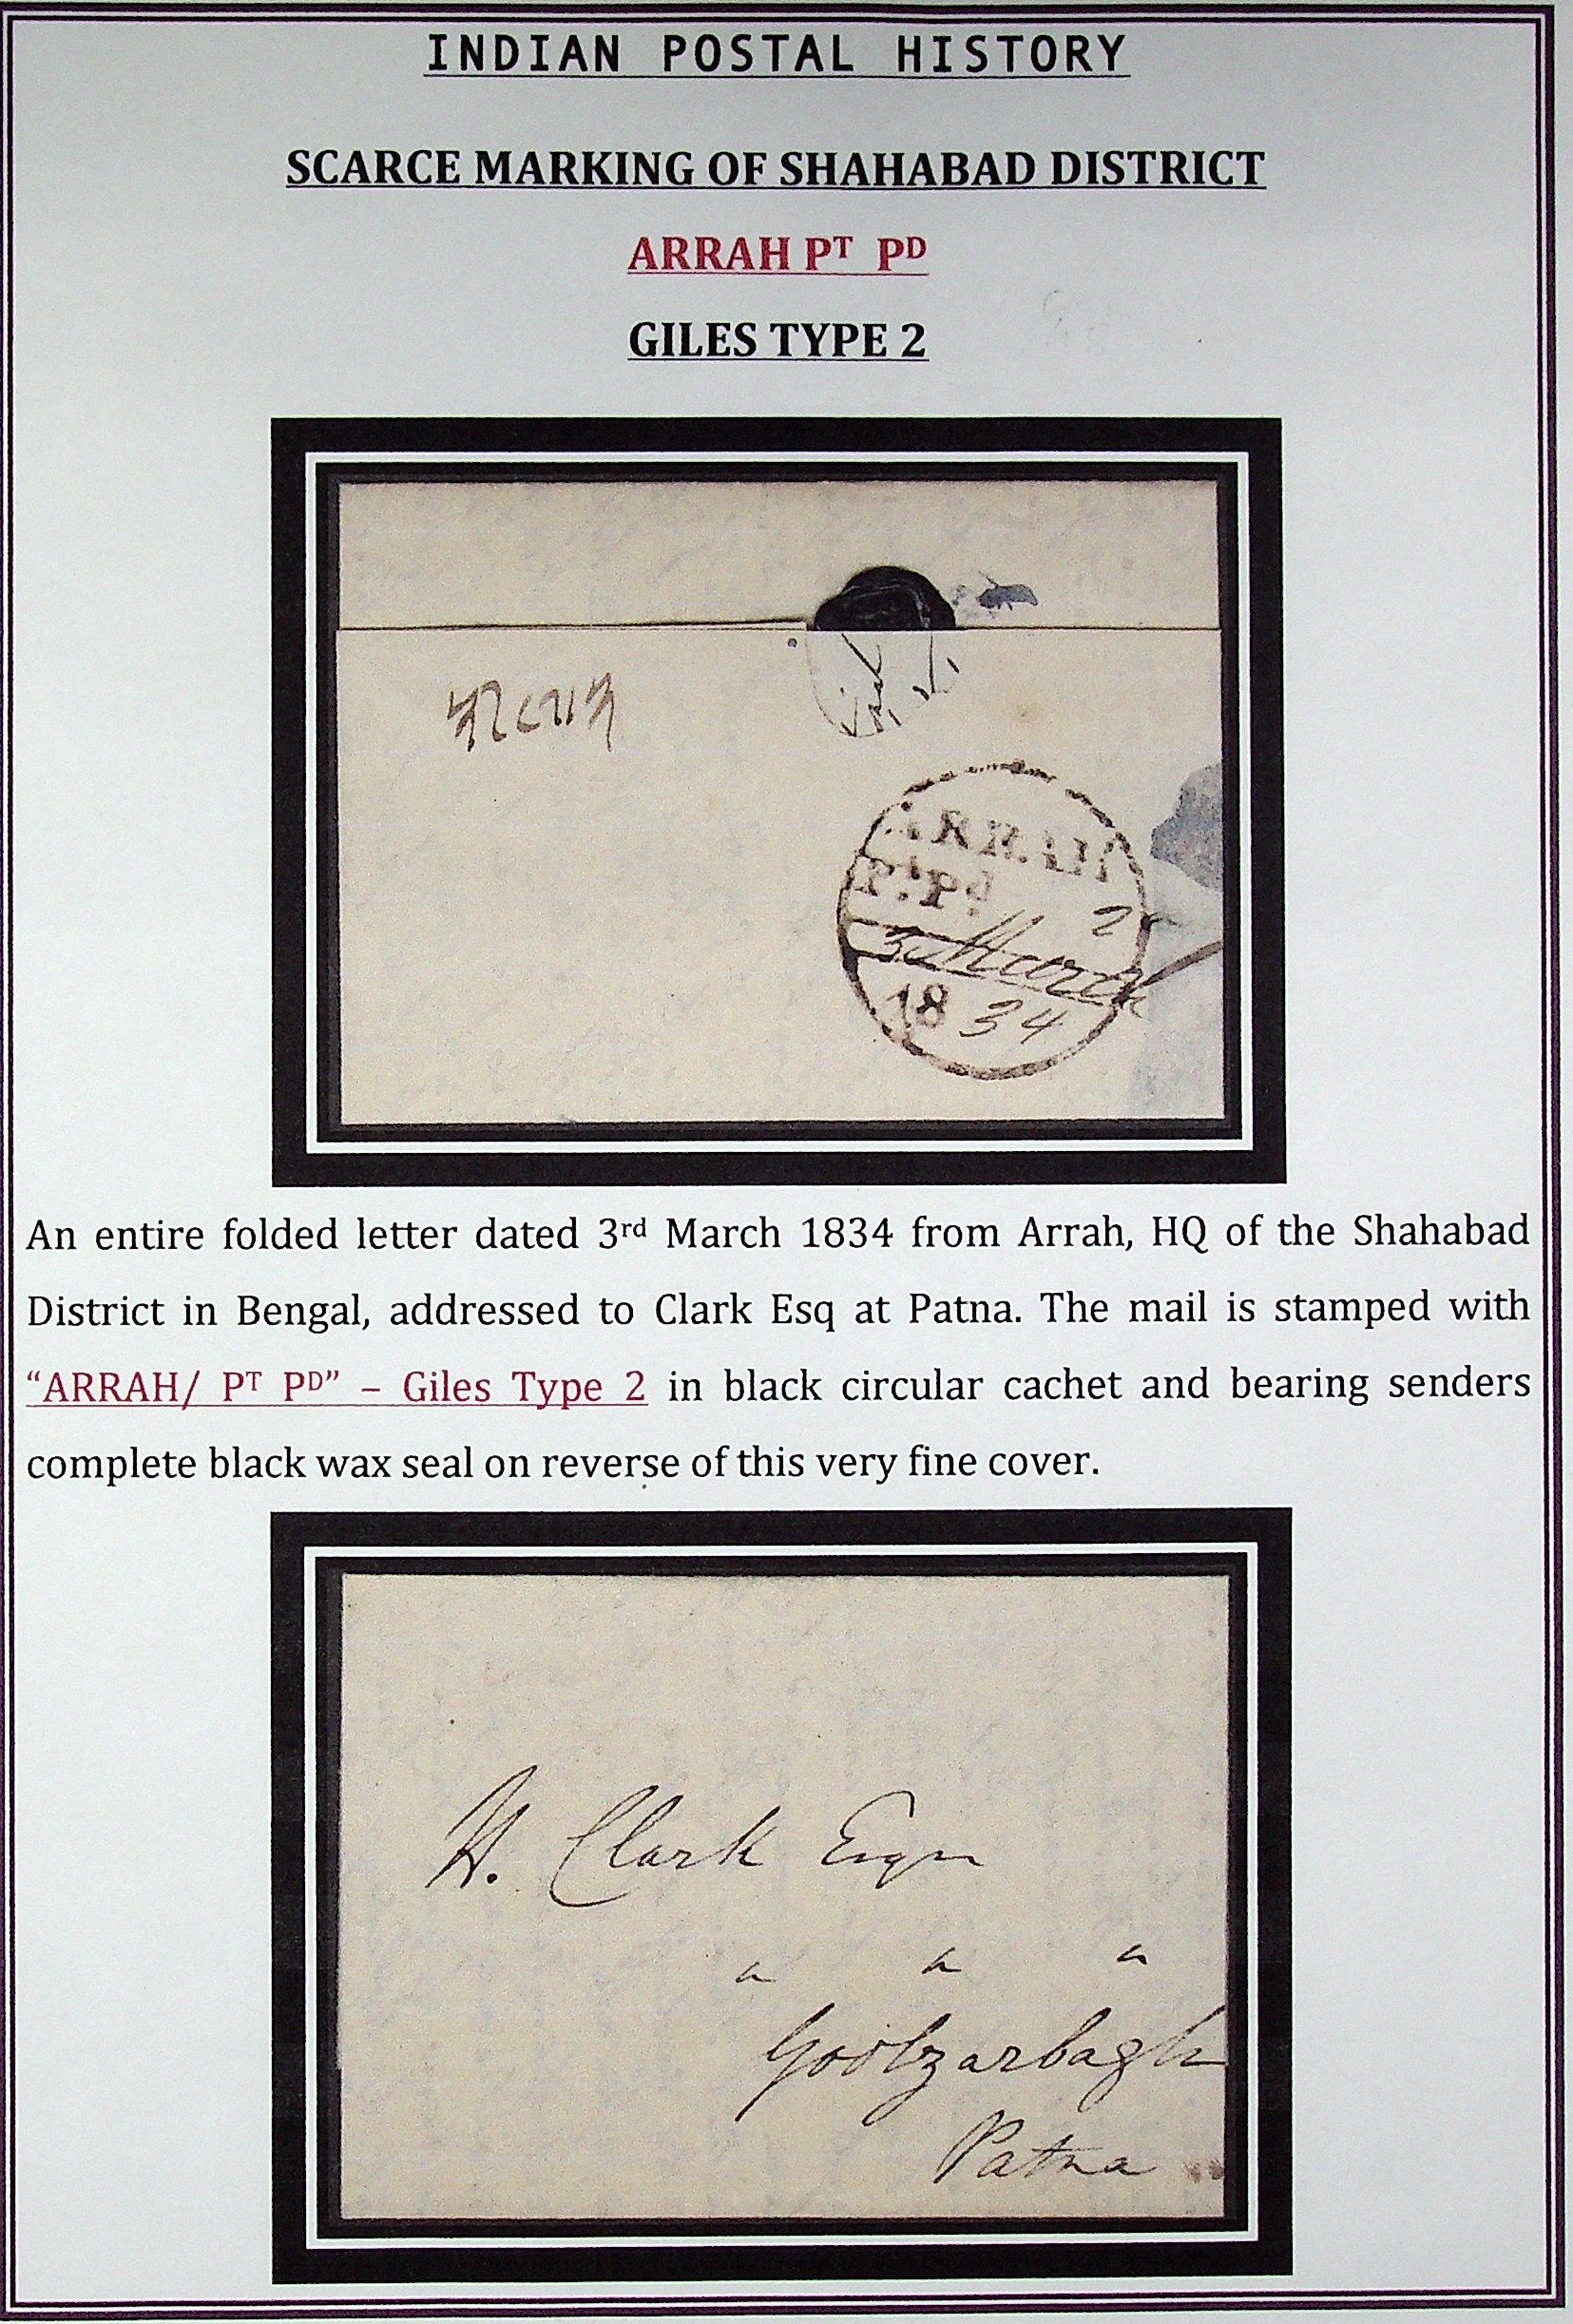 INDIAN POSTAL HISTORY
SCARCE MARKING OF SHAHABAD DISTRICT
ARRAH PT PD
GILES TYPE 2
ARRAH
Pt Pd 2
3 March
18 34
An entire folded letter dated 3rd March 1834 from Arrah, HQ of the Shahabad
District in Bengal, addressed to Clark Esq at Patna. The mail is stamped with
“ARRAH/ PT PD” – Giles Type 2 in black circular cachet and bearing senders
complete black wax seal on reverse of this very fine cover.
H. Clark Esqr
Goolzarbagh
Patna